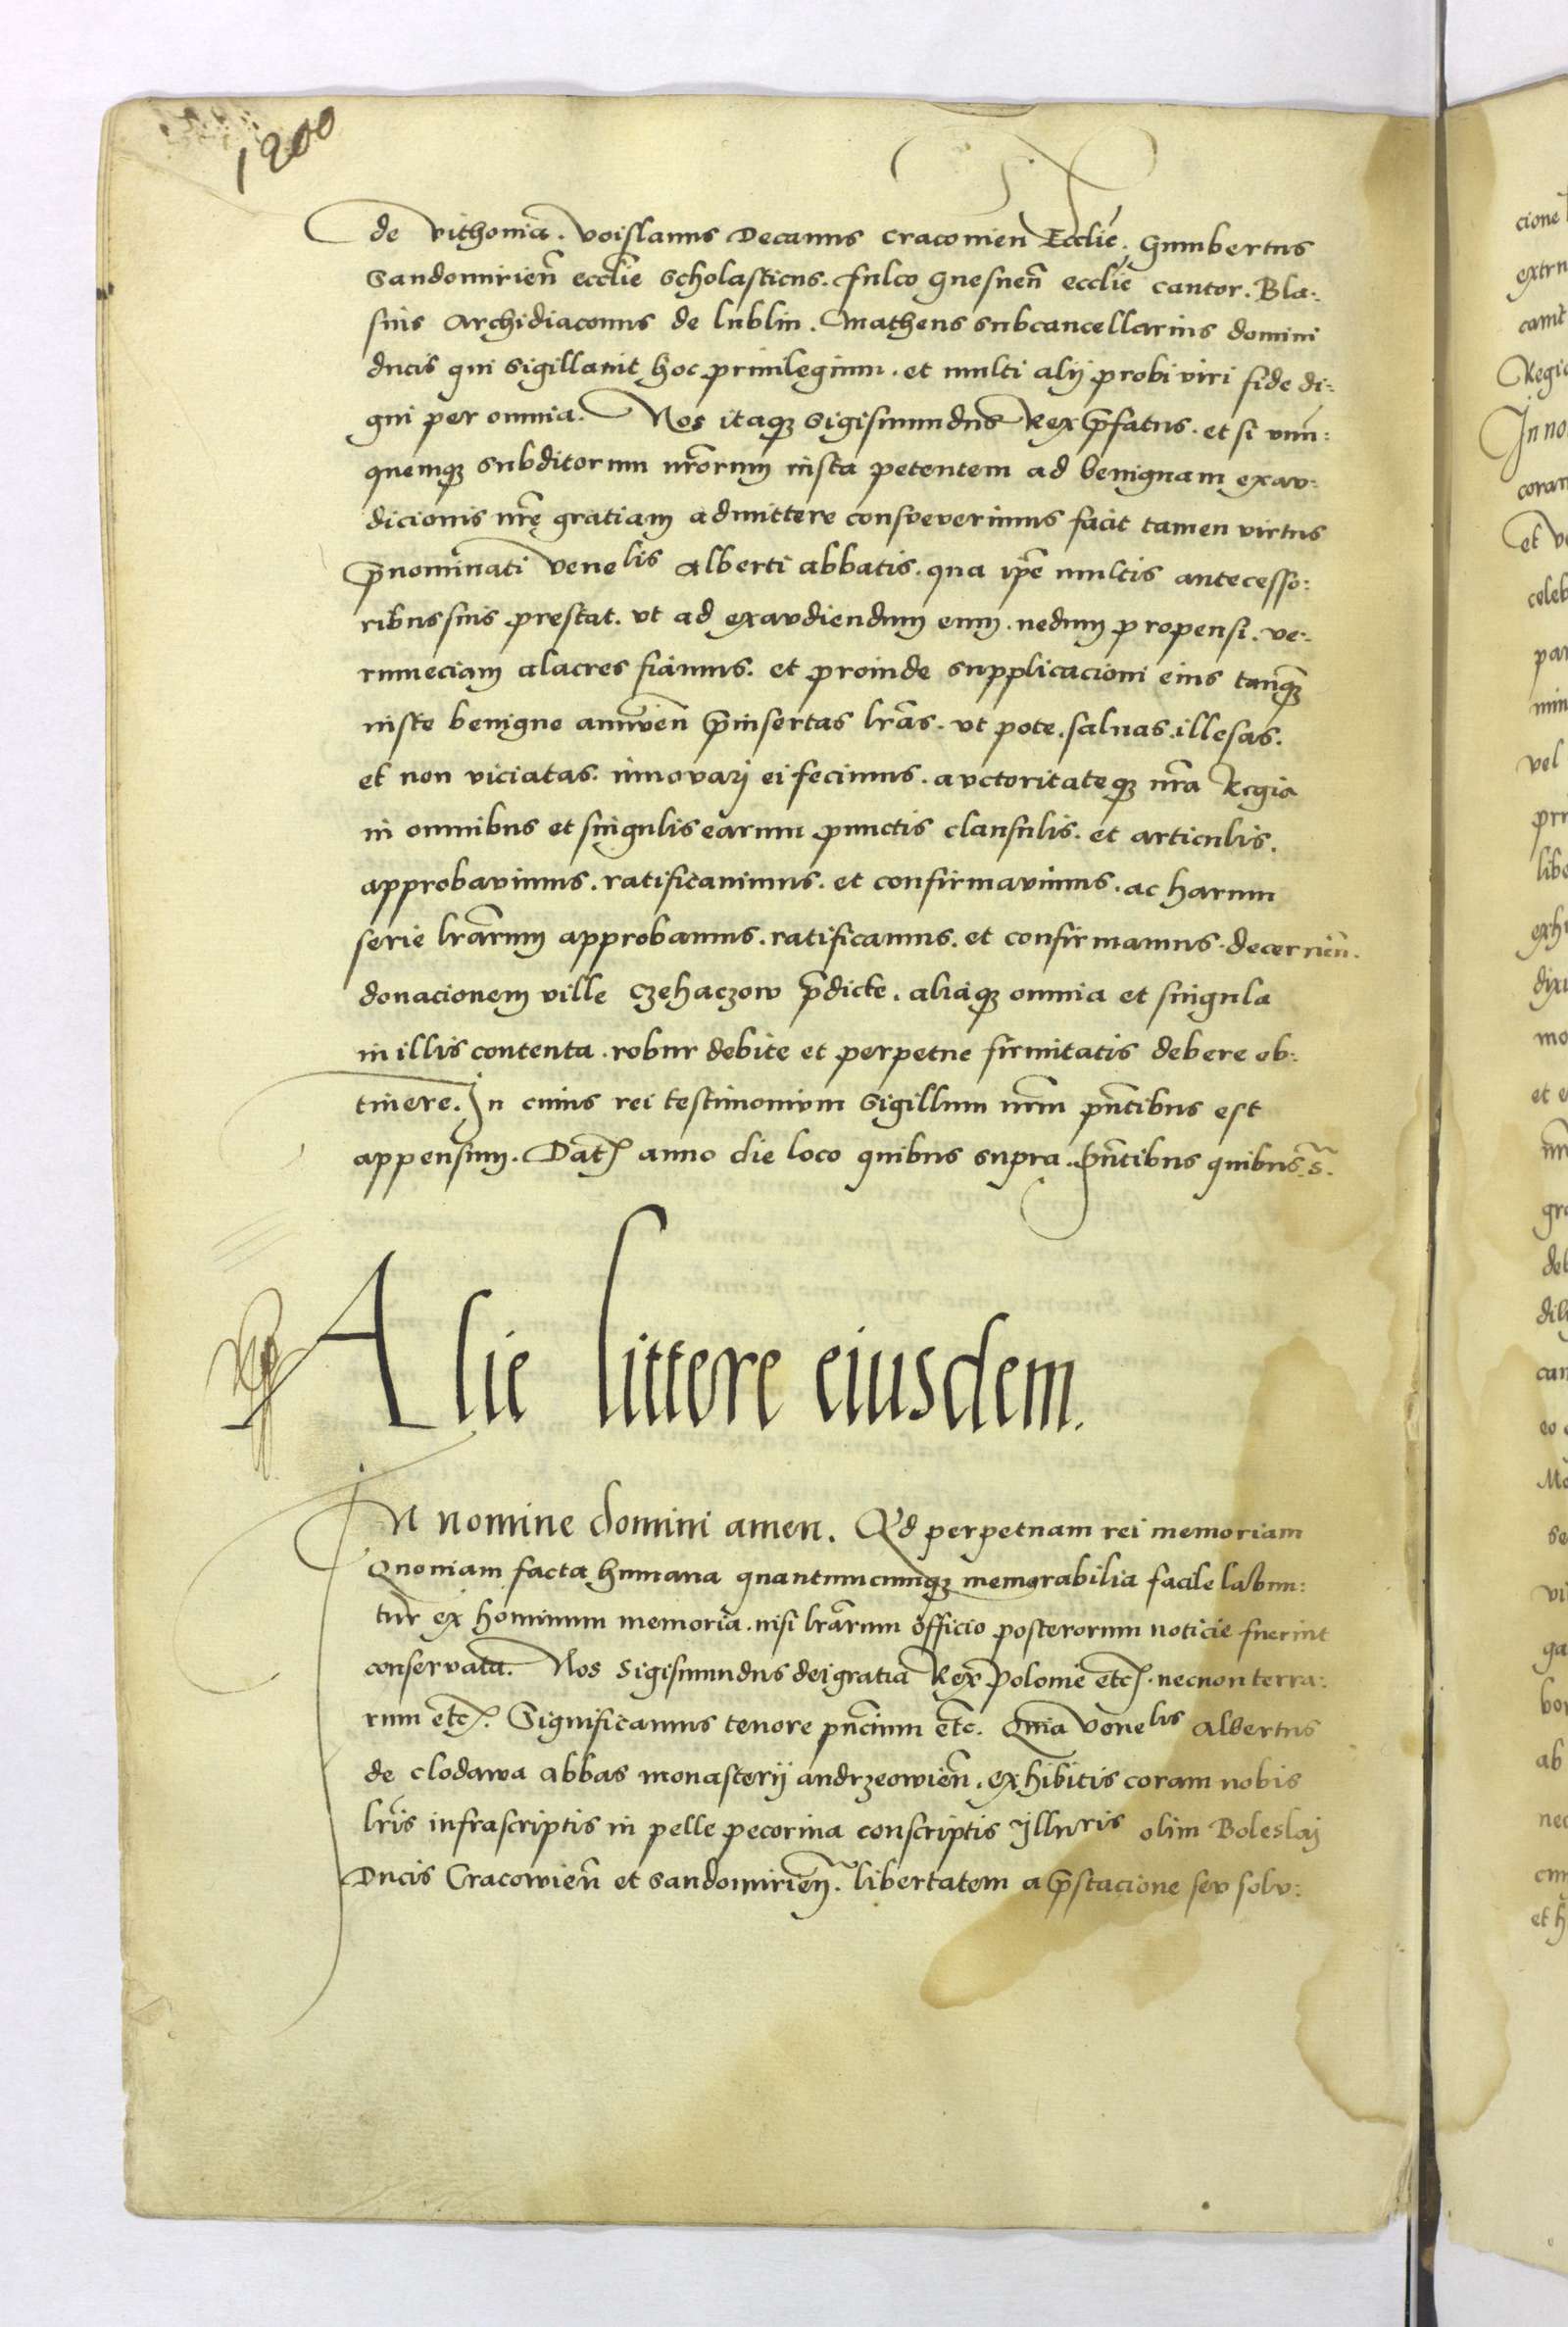 1200
de vithonia. Voislaus Decanus Cracovien̄ Ecclīe. Gumbertus
Sandomirien̄ ecclīe Scholasticus. Fulco Gnesnen̄ ecclīe cantor. Bla:
sius Archidiaconus de lublin. Matheus subcancellarius domini
ducis qui sigillavit hoc privilegium. et multi alij probi viri fide di:
gni per omnia. Nos itaqꝫ Sigismundus Rex p̄fatus. et si unū:
quemqꝫ subditorum nr̄orum iusta petentem ad benignam exau:
dicionis nr̄ę gratiam admittere consveverimus facit tamen virtus
p̄nominati Venelis Alberti abbatis. qua ip̄e multis antecesso:
ribus suis prestat. ut ad exaudiendum eum. nedum propensi. ve:
rumeciam alacres fiamus. et proinde supplicacioni eius tanq̄ꝫ
iuste benigne annuen̄ p̄insertas lrās. ut pote. salvas. illesas.
et non viciatas. innovari ei fecimus. auctoritateqꝫ nr̄a Regia
in omnibus et singulis earum punctis clausulis. et articulis.
approbavimus. ratificavimus. et confirmavimus. ac harum
serie lrārum approbamus. ratificamus. et confirmamus. decernen̄.
donacionem ville Czehaczow p̄dicte. aliaqꝫ omnia et singula
in illis contenta. robur debite et perpetue firmitatis debere ob:
tinere. In cuius rei testimonium Sigillum nrm̄ pn̄tibus est
appensum. Dat̄ anno die loco quibus supra. Pn̄tibus quibus s̄.
Alie littere eiusdem.
In nomine domini amen. Ad perpetuam rei memoriam
Quoniam facta humana quantumcumqꝫ memorabilia facile labun:
tur ex hominum memoria. nisi lrārum officio posterorum noticie fuerint
conservata. Nos Sigismundus dei gratia Rex Polonie etc̄. necnon terra:
rum etc̄. Significamus tenore pn̄cium etc̄. Quia Venelis Albertus
de Clodawa abbas monasterij andrzeowien̄. exhibitis coram nobis
lrīs infrascriptis in pelle pecorina conscriptis Illuris olim Boleslaj
Ducis Cracovien̄ et Sandomirien̄. libertatem a p̄stacione seu solu: